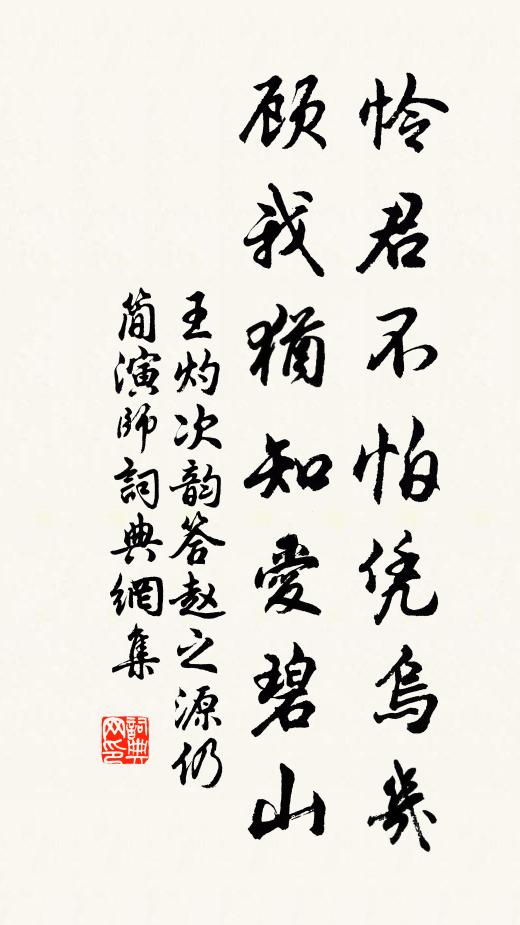 怜君不怕凭乌几
顾我犹知爱碧山
王灼次韵答赵之源仍
简演师詞典網集
詞典网印